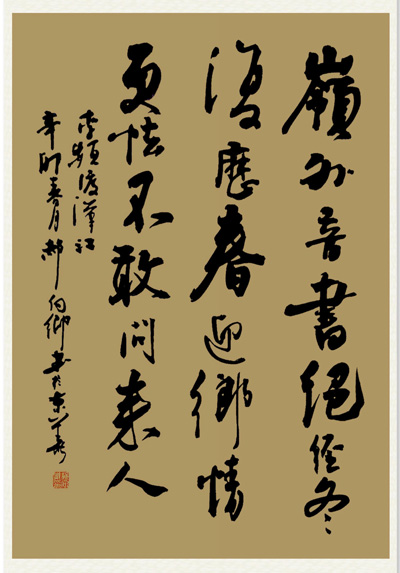 嶺外音書絕經冬
復歷春近鄉情
更怯不敢問來人
李頻渡漢江
辛卯春月郝書於京華